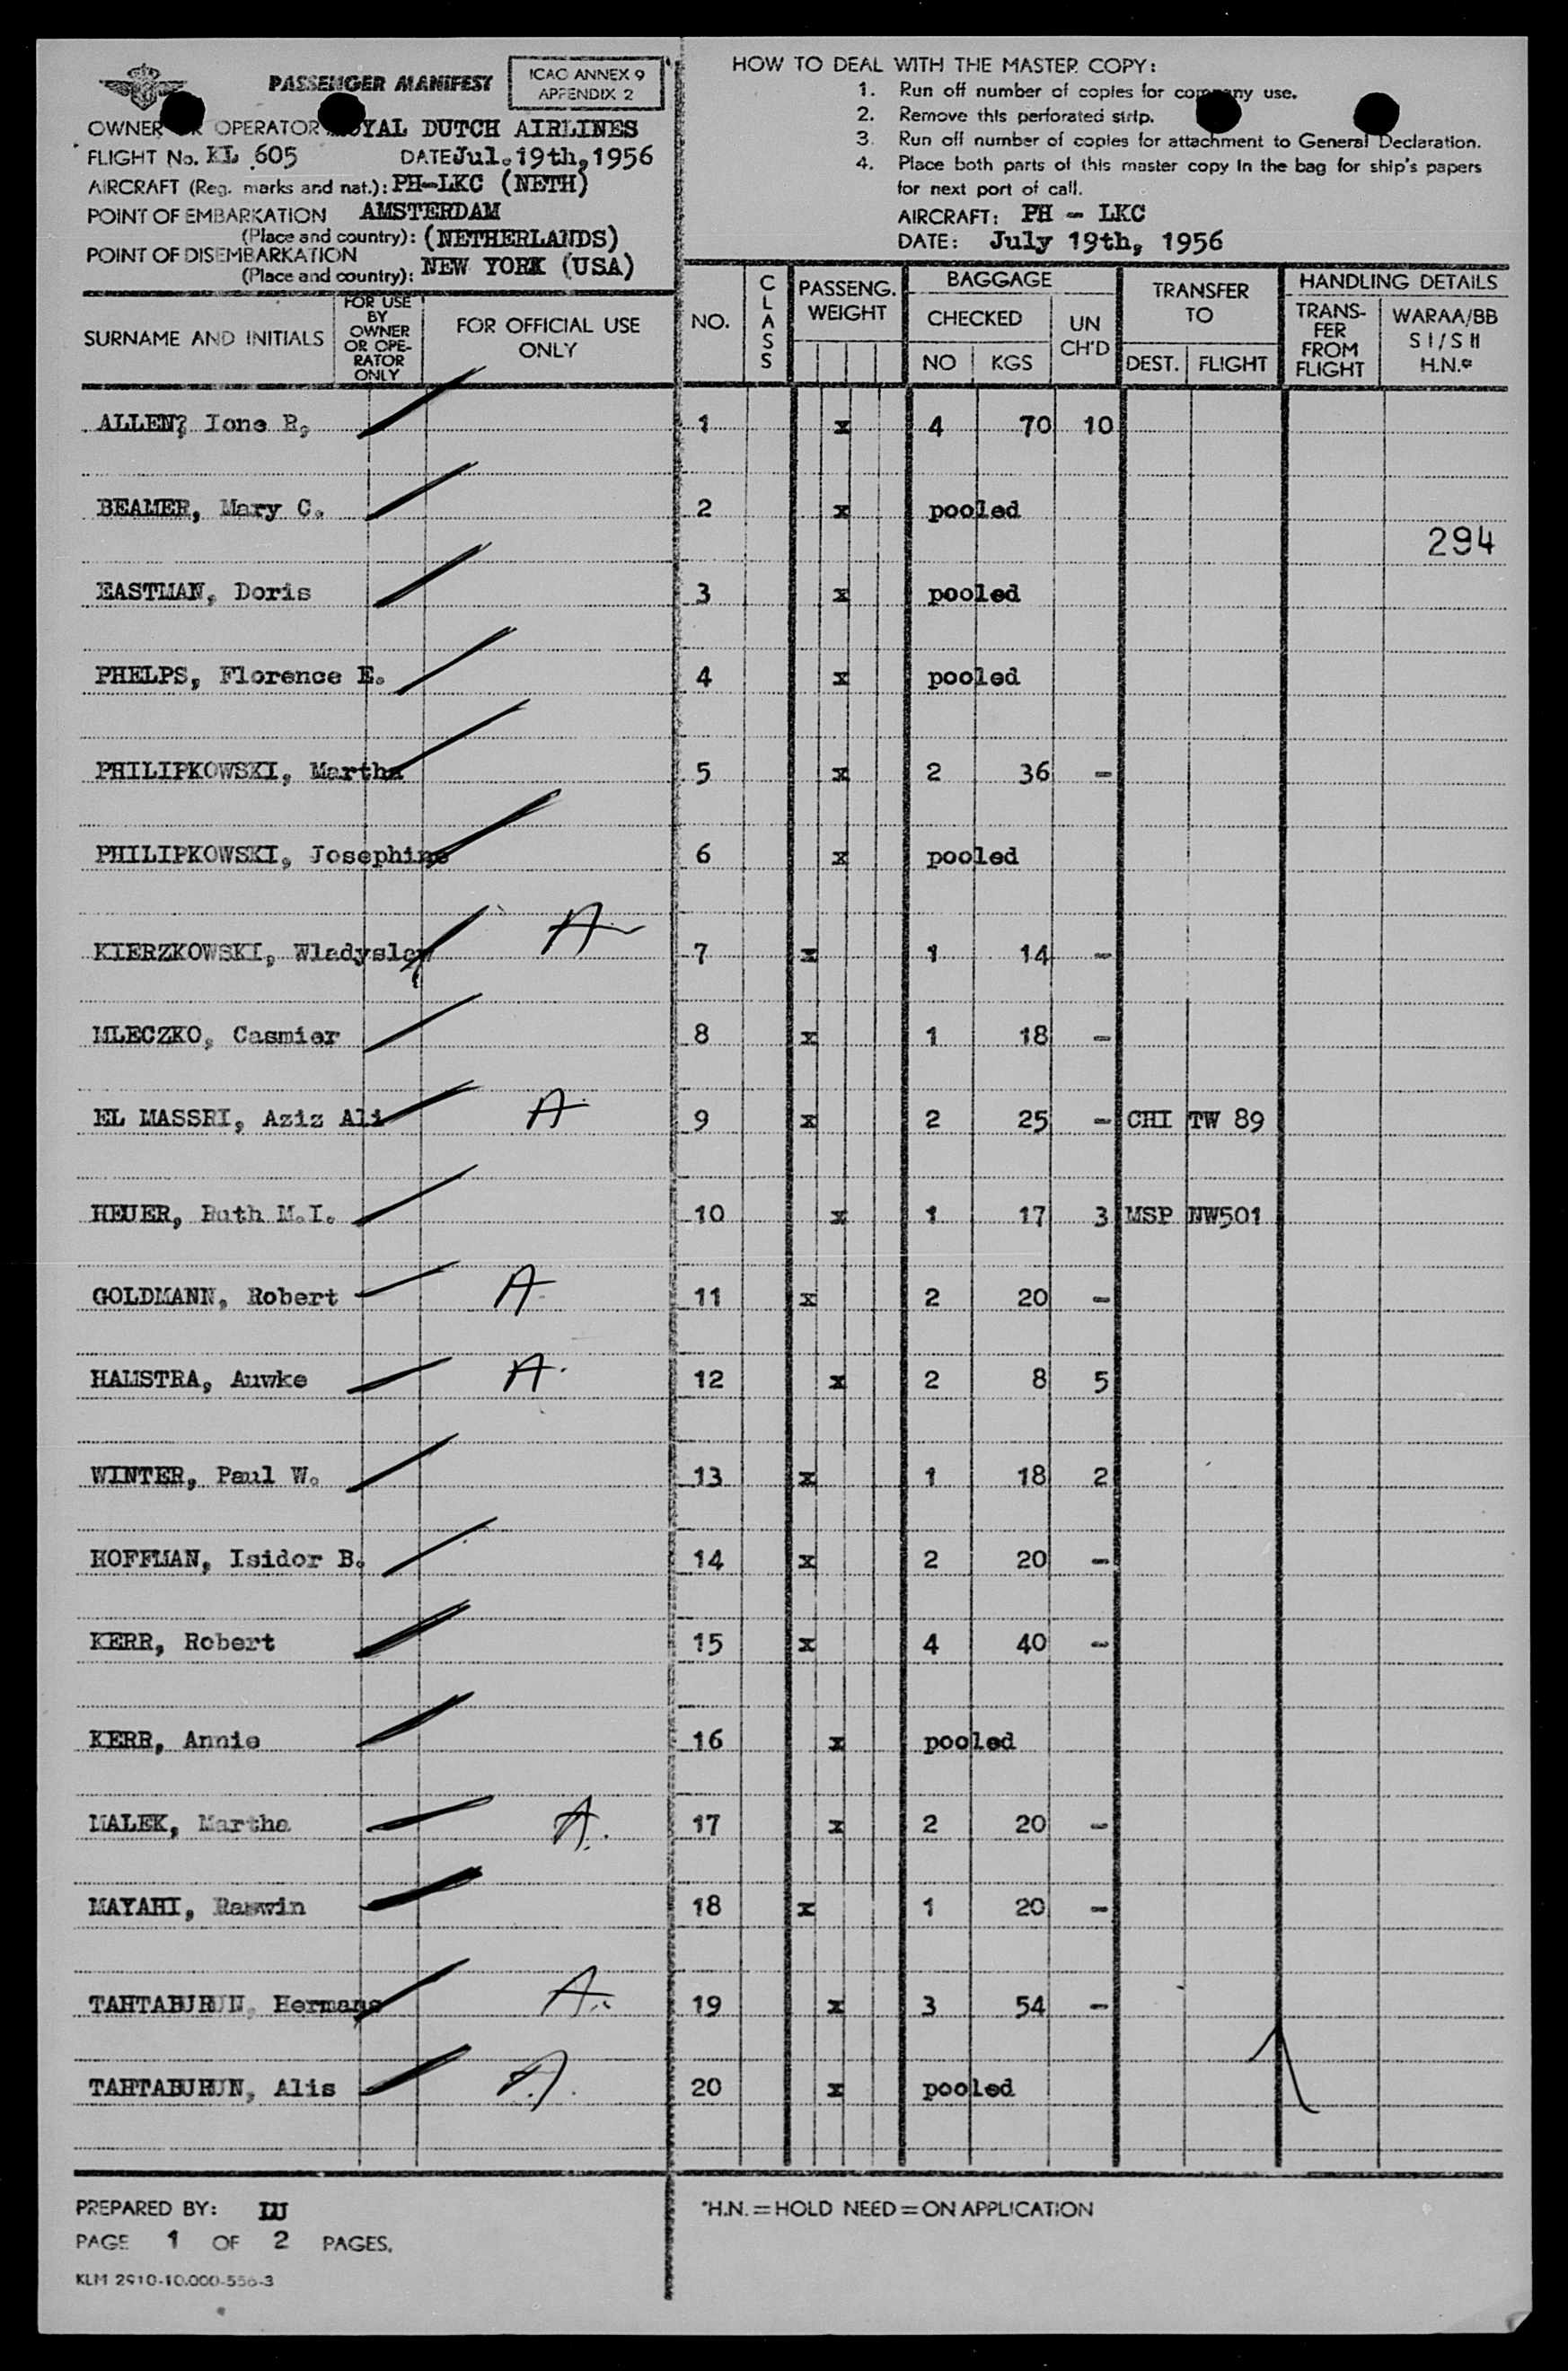 PASSENGER MANIFEST
ICAO ANNEX 9
APPENDIX 2
OWNER OPERATOR ROYAL DUTCH AIRLINES
FLIGHT No. KL 605 DATE Jul. 19th, 1956
AIRCRAFT (Reg. marks and nat.): PH-LKC (NETH)
POINT OF EMBARKATION AMSTERDAM
(Place and country): (NETHERLANDS)
POINT OF DISEMBARKATION
(Place and country): NEW YORK (USA)
HOW TO DEAL WITH THE MASTER COPY:
1. Run off number of copies for company use.
2. Remove this perforated strip.
3. Run off number of copies for attachment to General Declaration.
4. Place both parts of this master copy in the bag for ship's papers
for next port of call.
AIRCRAFT: PH - LKC
DATE: July 19th, 1956
SURNAME AND INITIALS
FOR USE
BY
OWNER
OR OPE-
RATOR
ONLY
FOR OFFICIAL USE
ONLY
NO.
CLASS
PASSENG.
WEIGHT
BAGGAGE
CHECKED
NO KGS
UN
CH'D
TRANSFER
TO
DEST. FLIGHT
HANDLING DETAILS
TRANS-
FER
FROM
FLIGHT
WARAA/BB
S I / S II
H.N.*
ALLEN, Ione R, 1 x 4 70 10
BEAMER, Mary C. 2 x pooled
294
EASTMAN, Doris 3 x pooled
PHELPS, Florence E. 4 x pooled
PHILIPKOWSKI, Martha 5 x 2 36 -
PHILIPKOWSKI, Josephine 6 x pooled
KIERZKOWSKI, Wladyslaw A 7 x 1 14 -
MLECZKO, Casmier 8 x 1 18 -
EL MASSRI, Aziz Ali A 9 x 2 25 - CHI TW 89
HEUER, Ruth M.I. 10 x 1 17 3 MSP NW501
GOLDMANN, Robert A 11 x 2 20 -
HALSTRA, Auwke A 12 x 2 8 5
WINTER, Paul W. 13 x 1 18 2
HOFFMAN, Isidor B. 14 x 2 20 -
KERR, Robert 15 x 4 40 -
KERR, Annie 16 x pooled
MALEK, Martha A. 17 x 2 20 -
MAYAHI, 18 x 1 20 -
TAHTABURUN, Hermans A. 19 x 3 54 -
TAHTABURUN, Alis A. 20 x pooled
PREPARED BY: LU
PAGE 1 OF 2 PAGES.
KLM 2910-10.000-556-3
*H.N. = HOLD NEED = ON APPLICATION